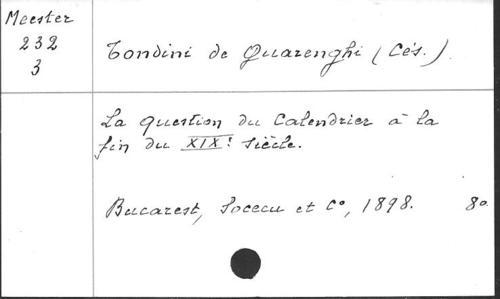 Meester
232
3
Tondini de Quarenghi (Cés.)
La question du Calendrier à la
fin du XIXe siècle.
Bucarest, Socecu et Co, 1898. 8o.